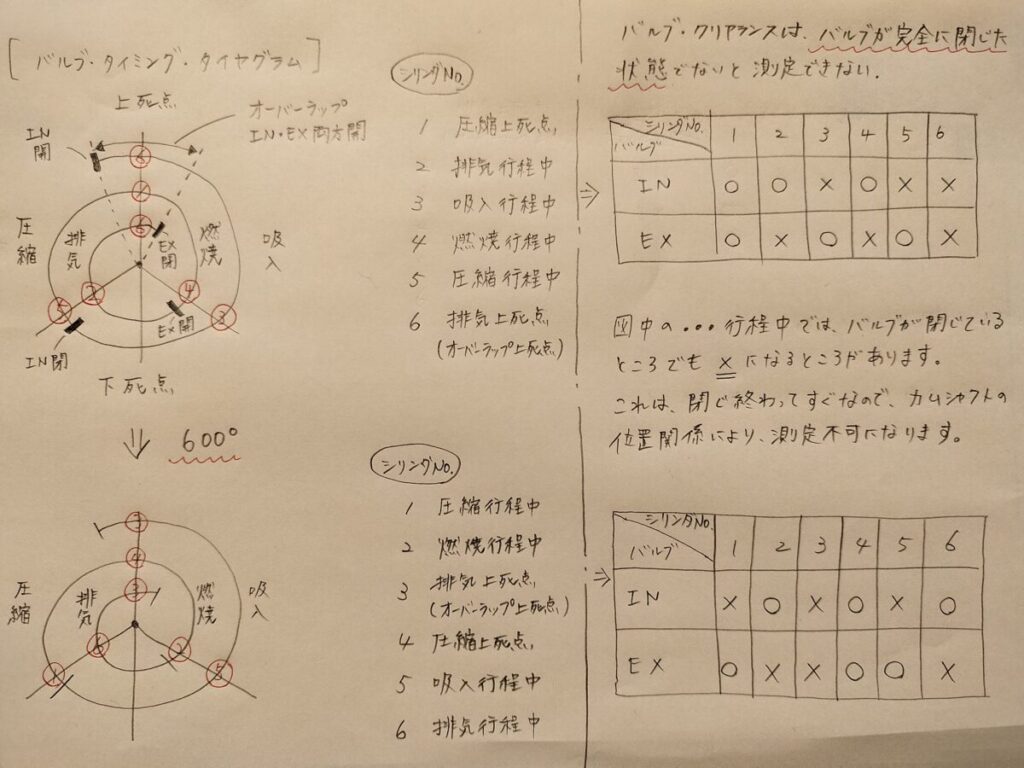 [バルブ・タイミング・タイヤグラム]
上死点
オーバーラップ
IN・EX両方開
IN
開
6
1
6
EX
閉
圧
縮
排
気
燃
焼
吸
入
5
2
4
3
EX開
IN閉
下死点
⇓ 600°
シリンダNo.
1 圧縮上死点
2 排気行程中
3 吸入行程中
4 燃焼行程中
5 圧縮行程中
6 排気上死点
(オーバーラップ上死点)
バルブ・クリアランスは、バルブが完全に閉じた
状態でないと測定できない。
⇒
シリンダNo. 1 2 3 4 5 6
バルブ
IN ○ ○ × ○ × ×
EX ○ × ○ × ○ ×
図中の・・・行程中では、バルブが閉じている
ところでも × になるところがあります。
これは、閉じ終わってすぐなので、カムシャフトの
位置関係により、測定不可になります。
3
4
3
圧
縮
排
気
燃
焼
吸
入
1
6
2
5
シリンダNo.
1 圧縮行程中
2 燃焼行程中
3 排気上死点
(オーバーラップ上死点)
4 圧縮上死点
5 吸入行程中
6 排気行程中
⇒
シリンダNo. 1 2 3 4 5 6
バルブ
IN × ○ × ○ × ○
EX ○ × × ○ ○ ×